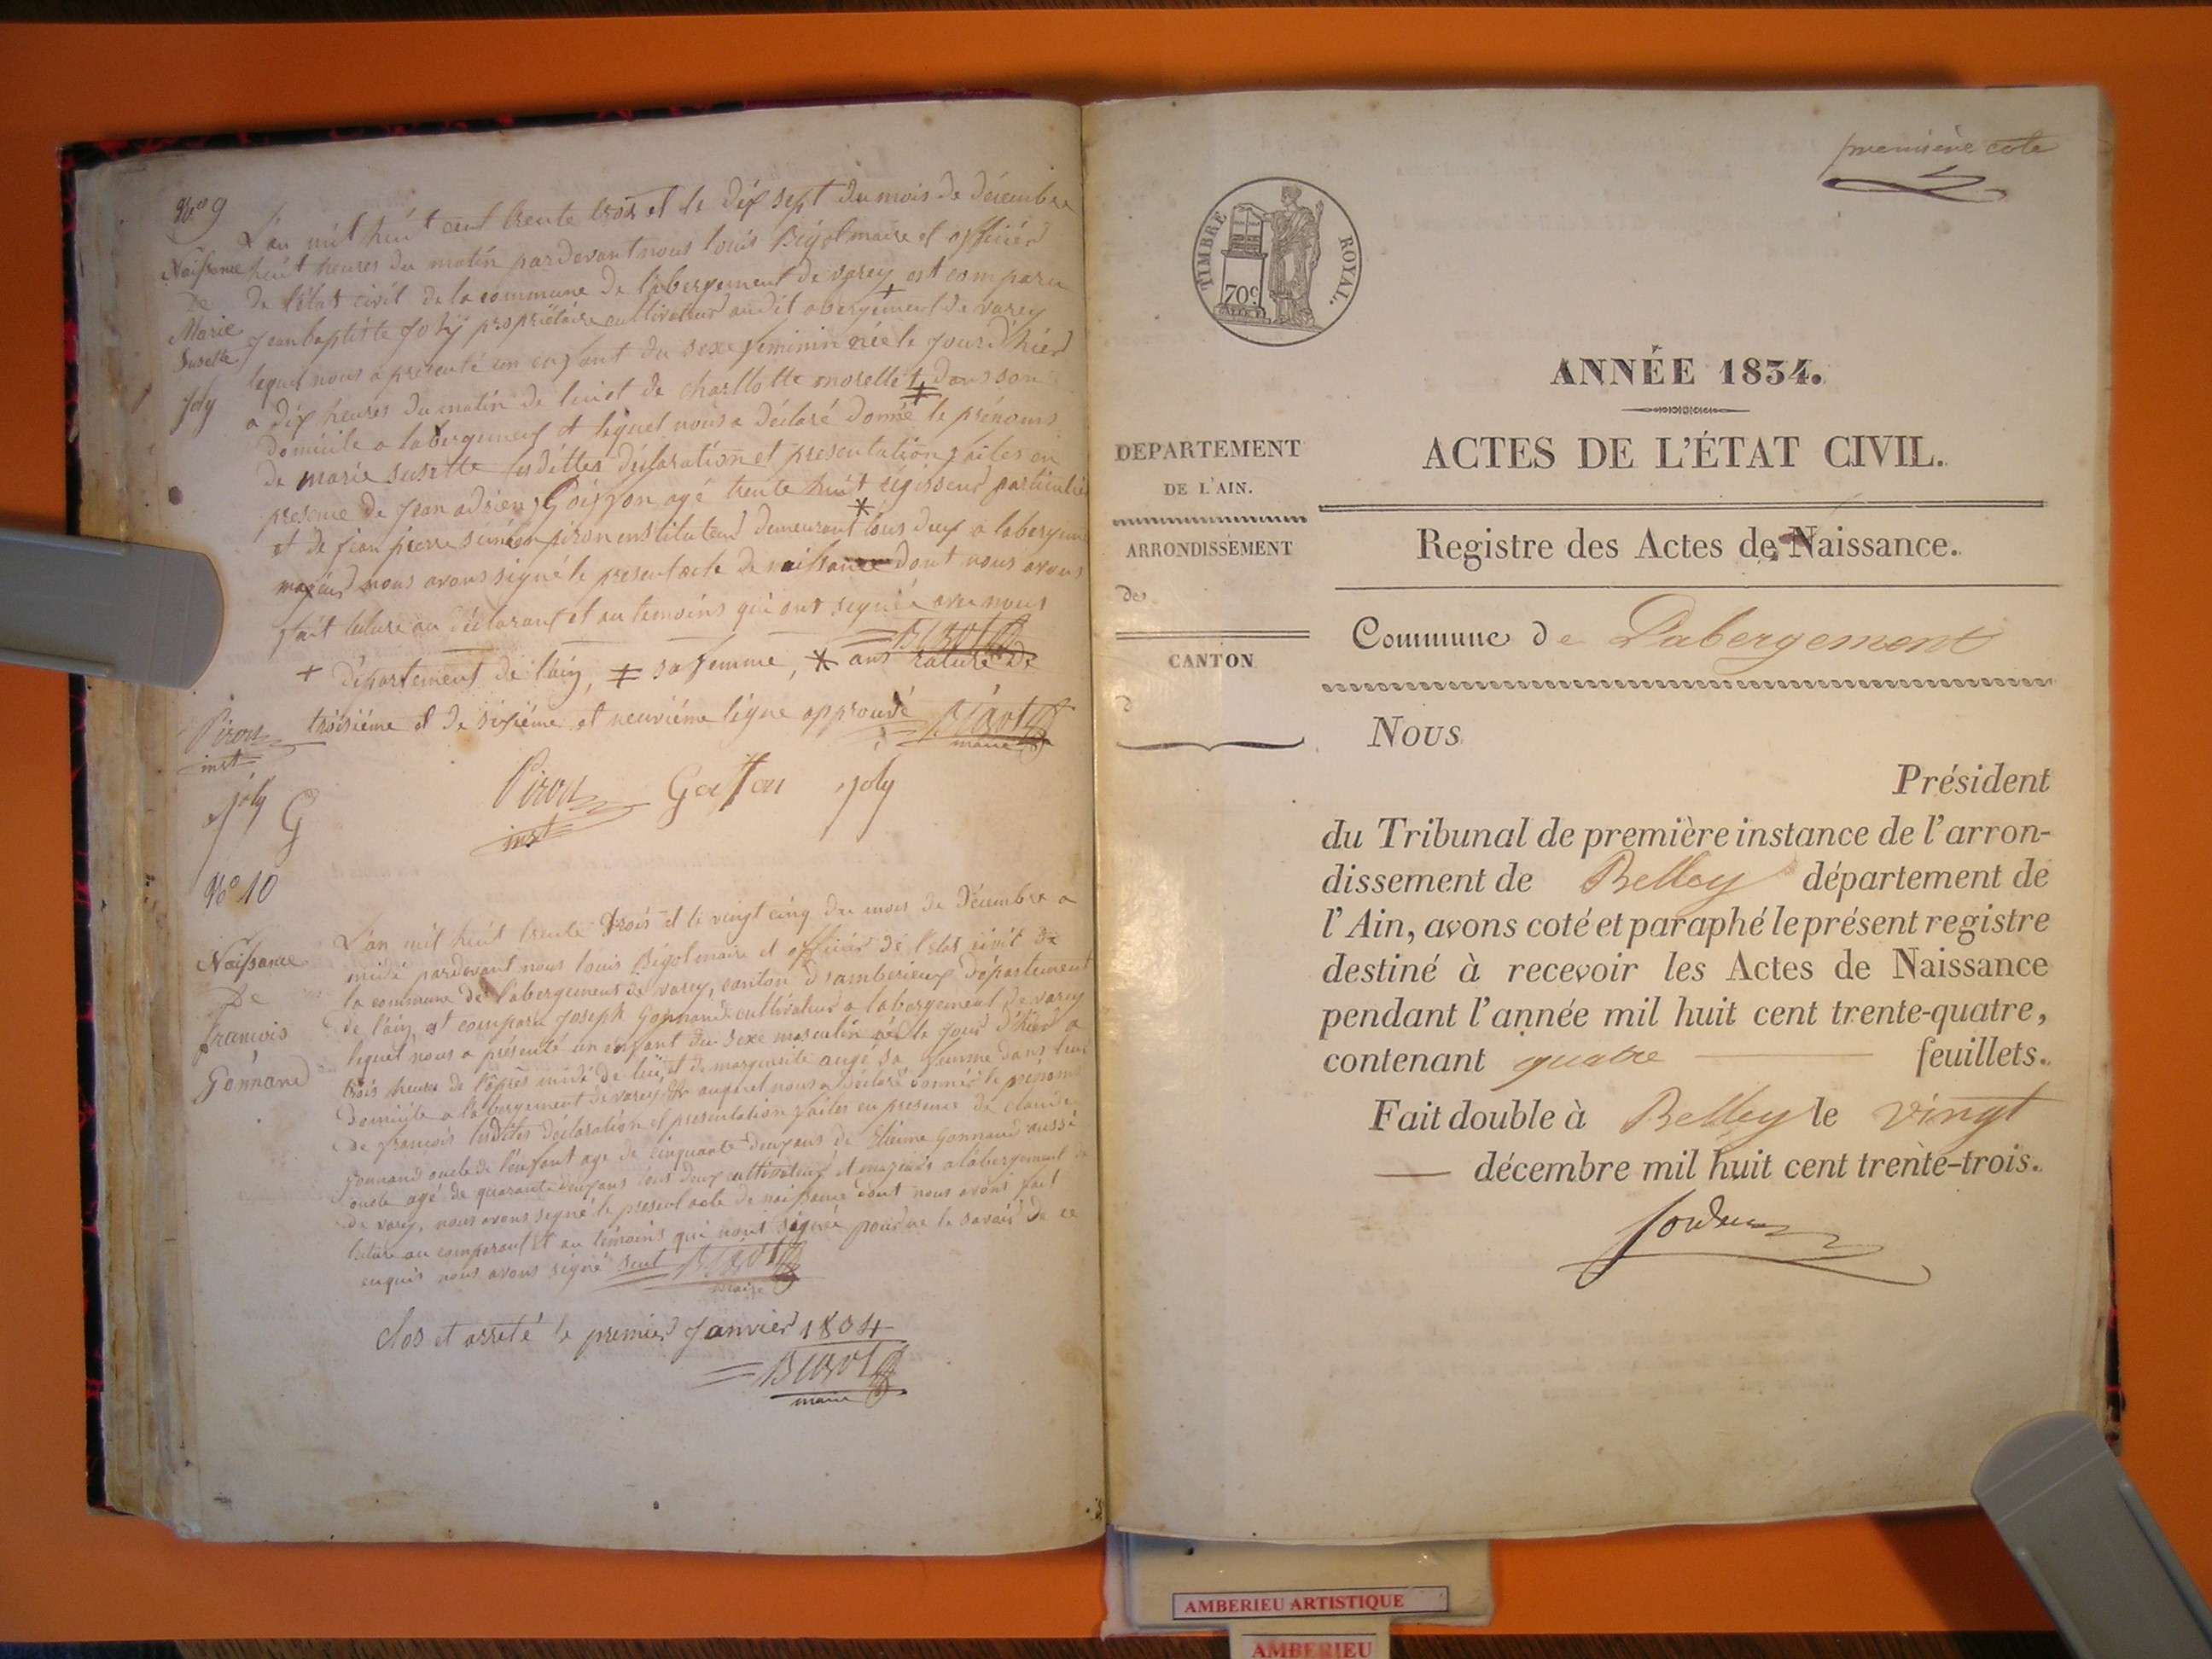 N° 9
Naissance
De
Marie
Susette
Joly
L'an mil huit cent trente trois et le dix sept du mois de décembre
huit heures du matin pardevant nous louis Bigot maire et officier
de l'état civil de la commune de l'abergement de varey est comparu
jean baptiste Joly propriétaire cultivateur au dit abergement de varey +
lequel nous a présenté un enfant du sexe feminin née le jour d'hier
a dix heures du matin de lui et de charlotte morellet ‡ dans son
domicile a labergement et lequel nous a déclaré donné le prénoms
de marie susette lesdittes déclaration et presentation faites en
presence de jean adrien Goiffon agé trente huit * régisseur particulier
et de jean pierre siméon piron instituteur demeurant tous deux a labergement
majeurs nous avons signé le present acte de naissance dont nous avons
fait lecture au déclarant et au temoins qui ont signée avec nous
Bigot
+ Département de l'ain, ‡ sa femme, * ans rature de
troisième et de sixième et neuvième ligne approuvé Bigot
maire
Piron
inst
joly G
Piron Goiffon joly
inst
N° 10
Naissance
De
francois
Gonnand
L'an mil huit trente trois et le vingt cinq du mois de Décembre a
midi pardevant nous louis Bigot maire et officier de l'état civil de
la commune de l'abergement de varey, canton d'amberieux département
de l'ain, est comparu Joseph Gonnand cultivateur a labergement de varey
lequel nous a présenté un enfant du sexe masculin né le jour d'hier a
trois heures de l'après midi de lui et de marguerite augé sa femme dans leur
domicile a labergement de varey auquel nous a déclaré donner le prénoms
de francois lesdites déclaration et presentation faites en presence de claude
gonnand oncle de l'enfant age de cinquante deux ans de Etienne Gonnand aussi
oncle agé de quarante deux ans tous deux cultivateurs et majeurs a labergement
de varey, nous avons signé le present acte de naissance dont nous avons fait
lecture au comparant et au témoins qui n'ont signée pour ne le savoir de ce
enquis nous avons signé seul Bigot
maire
Clos et arrêté le premier Janvier 1834
Bigot
maire
première cote
TIMBRE ROYAL.
70c
ANNÉE 1834.
ACTES DE L'ÉTAT CIVIL.
Registre des Actes de Naissance.
DEPARTEMENT
DE L'AIN.
ARRONDISSEMENT
de
CANTON
d
Commune de Labergement
Nous
Président
du Tribunal de première instance de l'arron-
dissement de Belley département de
l'Ain, avons coté et paraphé le présent registre
destiné à recevoir les Actes de Naissance
pendant l'année mil huit cent trente-quatre,
contenant quatre feuillets.
Fait double à Belley le vingt
décembre mil huit cent trente-trois.
AMBERIEU ARTISTIQUE
AMBERIEU